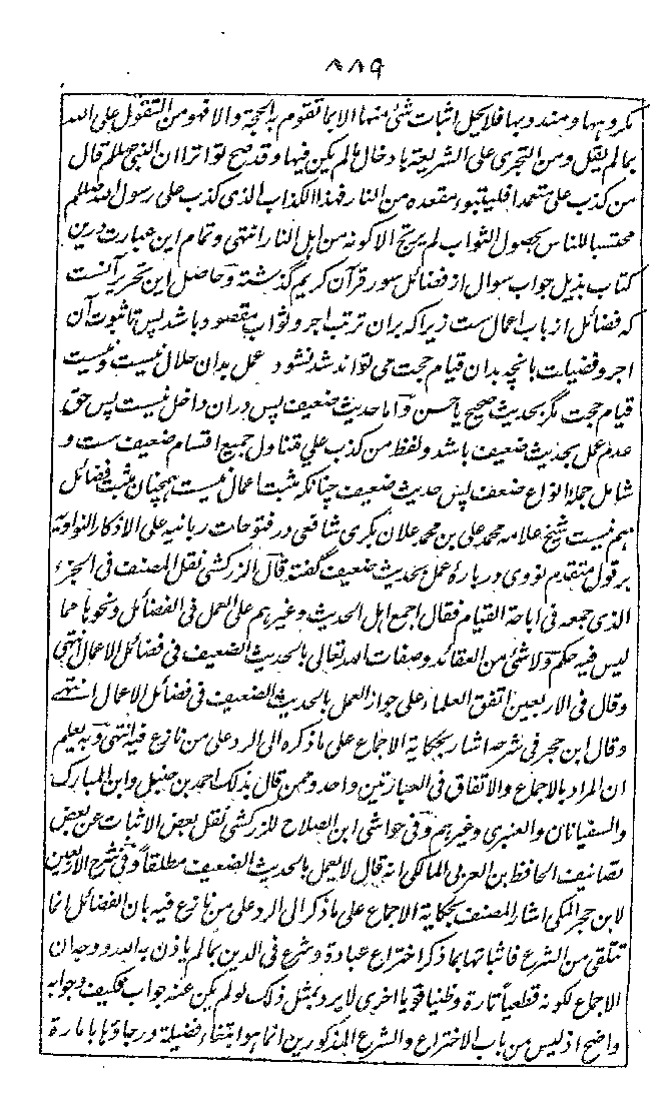 ۸۸۹
مکروہہا و مندوبہا فلا یحل اثبات شئ منہا الا بما تقوم بہ الحجۃ والا فہو من التقول علی اللہ
بما لم یقل و من التجری علی الشریعۃ بادخال ما لم یکن فیہا و قد صح تواترا ان النبی صللم قال
من کذب علی متعمدا فلیتبوء مقعدہ من النار فہذا الکذاب الذی کذب علی رسول اللہ صللم
محتسبا للناس بحصول الثواب لم یربح الا کونہ من اہل النار انتہی و تمام این عبارت درین
کتاب بذیل جواب سوال از فضائل سور قرآن کریم گذشتہ و حاصل این تحریر آنست
کہ فضائل از باب اعمال ست زیرا کہ بران ترتب اجر و ثواب مقصود باشد پس تا ثبوت آن
اجر و فضیلت بانچہ بدان قیام حجت می تواند شد نشود عمل بدان حلال نیست و نیست
قیام حجت مگر بحدیث صحیح یا حسن و اما حدیث ضعیف پس دران داخل نیست پس حق
عدم عمل بحدیث ضعیف باشد و لفظ من کذب علی متناول جمیع اقسام ضعیف ست و
شامل جملہ انواع ضعف پس حدیث ضعیف چنانکہ مثبت اعمال نیست ہمچنان مثبت فضائل
ہم نیست شیخ علامہ محمد علی بن محمد علان بکری شافعی در فتوحات ربانیہ علی الاذکار النواویہ
بر قول متقدم نووی در بارۂ عمل بحدیث ضعیف گفتہ قال الزرکشی نقل المصنف فی الجزء
الذی جمعہ فی اباحۃ القیام فقال اجمع اہل الحدیث و غیرہم علی العمل فی الفضائل و نحوہا مما
لیس فیہ حکم و لا شئ من العقائد و صفات اللہ تعالی بالحدیث الضعیف فی فضائل الاعمال انتہی
و قال فی الاربعین اتفق العلماء علی جواز العمل بالحدیث الضعیف فی فضائل الاعمال انتہے
و قال ابن حجر فی شرحہ اشار بحکایۃ الاجماع علی ما ذکرہ الی الرد علی من نازع فیہ انتہی و بہ یعلم
ان المراد بالاجماع والاتفاق فی العبارتین واحد و ممن قال بذلک احمد بن حنبل و ابن المبارک
والسفیانان والعنبری و غیرہم و فی حواشی ابن الصلاح للزرکشی نقل بعض الاثبات عن بعض
تصانیف الحافظ بن العربی المالکی انہ قال لا یعمل بالحدیث الضعیف مطلقاً و فی شرح الاربعین
لابن حجر المکی اشار المصنف بحکایۃ الاجماع علی ما ذکر الی الرد علی من نازع فیہ بان الفضائل انما
تتلقی من الشرع فاثباتہا بما ذکر اختراع عبادۃ و شرع فی الدین بما لم یأذن بہ اللہ و وجہ ان
الاجماع لکونہ قطعیاً تارۃ و ظنیا قویا اخری لا یرد بمثل ذلک لو لم یکن عنہ جواب فکیف و جوابہ
واضح اذ لیس من باب الاختراع والشرع المذکورین انما ہو ابتغاء فضیلۃ و رجاؤہا بامارۃ